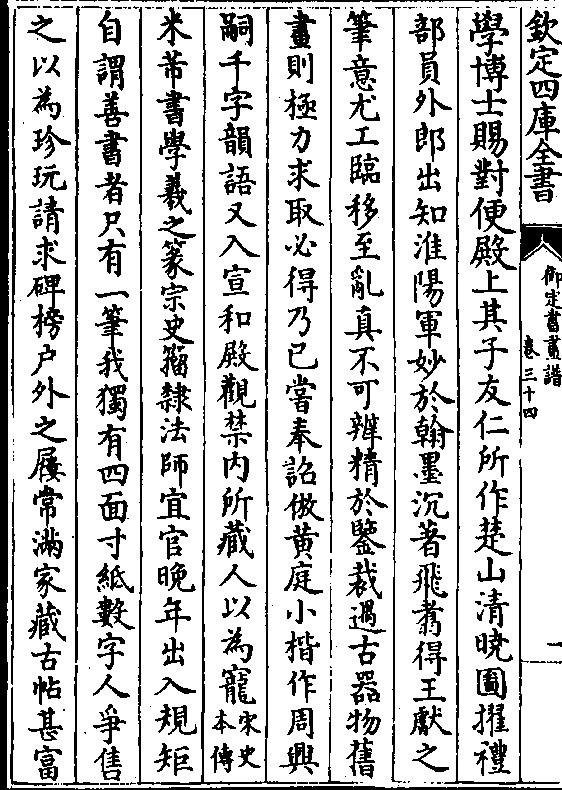 欽定四庫全書
御定書畫譜
卷三十四
一
學博士賜對便殿上其子友仁所作楚山清曉圖擢禮
部員外郎出知淮陽軍妙於翰墨沉著飛翥得王獻之
筆意尤工臨移至亂真不可辨精於鑒裁遇古器物舊
畫則極力求取必得乃已嘗奉詔倣黄庭小楷作周興
嗣千字韻語又入宣和殿觀禁内所藏人以為寵宋史
本傳
米芾書學羲之篆宗史籀隸法師宜官晚年出入規矩
自謂善書者只有一筆我獨有四面寸紙數字人爭售
之以為珍玩請求碑榜户外之屨常滿家藏古帖甚富